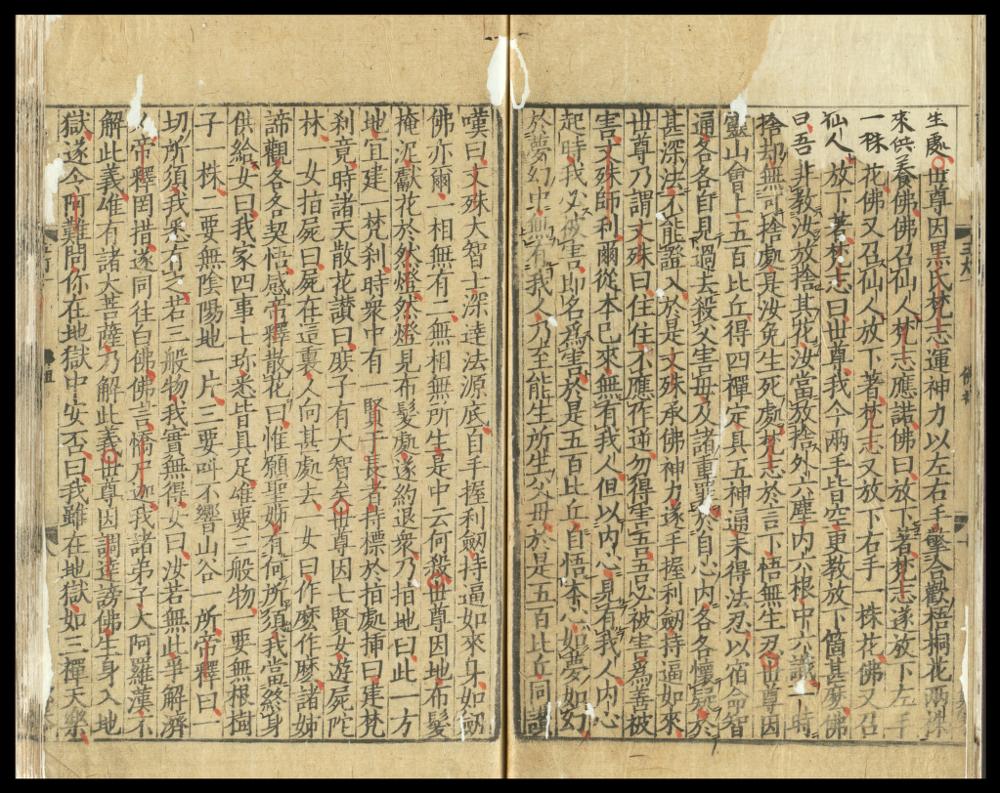 生處世尊因黑氏梵志運神力以左右手擎合歡梧桐花兩株
來供養佛佛召仙人梵志應諾佛曰放下著梵志遂放下左手
一株花佛又召仙人放下著梵志又放下右手一株花佛又召
仙人放下著梵志曰世尊我今兩手皆空更教放下箇甚麼佛
曰吾非教汝放捨其花汝當放捨外六塵內六根中六識一時
捨却無可捨處是汝免生死處梵志於言下悟無生忍世尊因
靈山會上五百比丘得四禪定具五神通未得法忍以宿命智
通各各自見過去殺父害母及諸重罪於自心內各各懷疑於
甚深法不能證入於是文殊承佛神力遂手握利劒持逼如來
世尊乃謂文殊曰住住不應作逆勿得害吾吾必被害爲善被
害文殊師利爾從本已來無有我人但以內心見有我人內心
起時我必被害即名爲害於是五百比丘自悟本心如夢如幻
於夢幻中無有我人乃至能生所生父母於是五百比丘同讚
嘆曰文殊大智士深達法源底自手握利劒持逼如來身如劒
佛亦爾一相無有二無相無所生是中云何殺世尊因地布髮
掩泥獻花於然燈然燈見布髮處遂約退衆乃指地曰此一方
地宜建一梵刹時衆中有一賢于長者持標於指處插曰建梵
刹竟時諸天散花讃曰庻子有大智矣世尊因七賢女遊屍陀
林一女指屍曰屍在這裏人向甚處去一女曰作麽作麽諸姊
諦觀各各契悟感帝釋散花曰惟願聖姊有何所須我當終身
供給女曰我家四事七珎悉皆具足唯要三般物一要無根樹
子一株二要無陰陽地一片三要叫不響山谷一所帝釋曰一
切所須我悉有之若三般物我實無得女曰汝若無此爭解濟
人帝釋罔措遂同往白佛佛言憍尸迦我諸弟子大阿羅漢不
解此義唯有諸大菩薩乃解此義世尊因調達謗佛生身入地
獄遂令阿難問你在地獄中安否曰我雖在地獄如三禪天樂